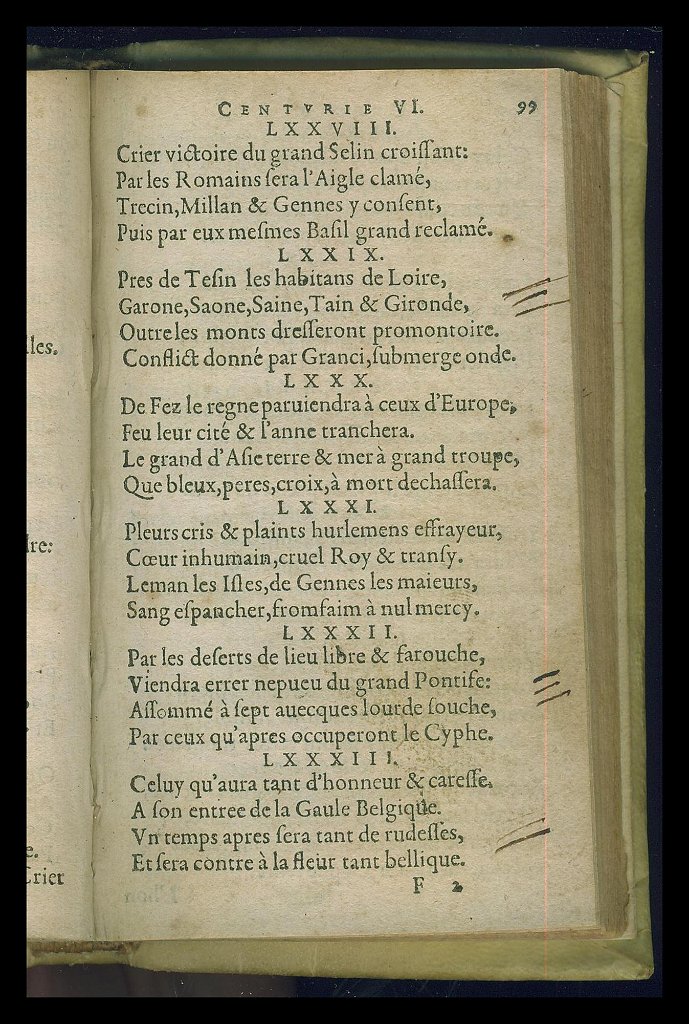 les.
dre:
e.
Crier
CENTVRIE VI. 99
LXXVIII.
Crier victoire du grand Selin croiſſant:
Par les Romains ſera l'Aigle clamé,
Trecin, Millan & Gennes y conſent,
Puis par eux meſmes Baſil grand reclamé.
LXXIX.
Pres de Teſin les habitans de Loire,
Garone, Saone, Saine, Tain & Gironde,
Outre les monts dreſſeront promontoire.
Conflict donné par Granci, ſubmerge onde.
LXXX.
De Fez le regne paruiendra à ceux d'Europe,
Feu leur cité & l'anne tranchera.
Le grand d'Aſie terre & mer à grand troupe,
Que bleux, peres, croix, à mort dechaſſera.
LXXXI.
Pleurs cris & plaints hurlemens effrayeur,
Cœur inhumain, cruel Roy & tranſy.
Leman les Iſles, de Gennes les maieurs,
Sang eſpancher, fromfaim à nul mercy.
LXXXII.
Par les deſerts de lieu libre & farouche,
Viendra errer nepueu du grand Pontife:
Aſſommé à ſept auecques lourde ſouche,
Par ceux qu'apres occuperont le Cyphe.
LXXXIII.
Celuy qu'aura tant d'honneur & careſſe.
A ſon entree de la Gaule Belgique.
Vn temps apres ſera tant de rudeſſes,
Et ſera contre à la fleur tant bellique.
F 2